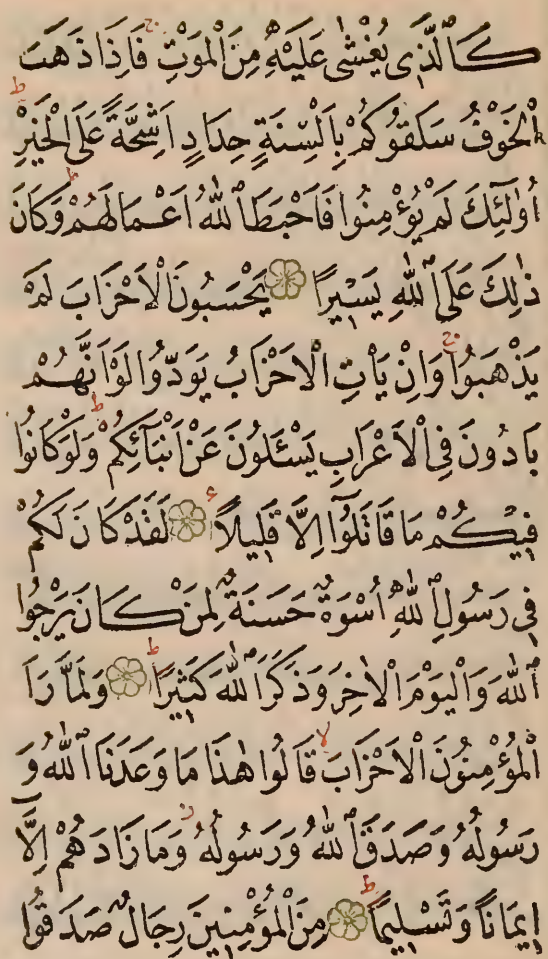 كَالَّذٖى يُغْشٰى عَلَيْهِ مِنَ الْمَوْتِۚ فَاِذَا ذَهَبَ
الْخَوْفُ سَلَقُوكُمْ بِاَلْسِنَةٍ حِدَادٍ اَشِحَّةً عَلَى الْخَيْرِؕ
اُولٰٓئِكَ لَمْ يُؤْمِنُوا فَاَحْبَطَ اللّٰهُ اَعْمَالَهُمْؕ وَكَانَ
ذٰلِكَ عَلَى اللّٰهِ يَسٖيرًا يَحْسَبُونَ الْاَحْزَابَ لَمْ
يَذْهَبُواۚ وَاِنْ يَاْتِ الْاَحْزَابُ يَوَدُّوا لَوْ اَنَّهُمْ
بَادُونَ فِى الْاَعْرَابِ يَسْئَلُونَ عَنْ اَنْبَآئِكُمْؕ وَلَوْ كَانُوا
فٖيكُمْ مَا قَاتَلُٓوا اِلَّا قَلٖيلًا ء لَقَدْ كَانَ لَكُمْ
فٖى رَسُولِ اللّٰهِ اُسْوَةٌ حَسَنَةٌ لِمَنْ كَانَ يَرْجُوا
اللّٰهَ وَالْيَوْمَ الْاٰخِرَ وَذَكَرَ اللّٰهَ كَثٖيرًاؕ وَلَمَّا رَاَ
الْمُؤْمِنُونَ الْاَحْزَابَۙ قَالُوا هٰذَا مَا وَعَدَنَا اللّٰهُ وَ
رَسُولُهُ وَصَدَقَ اللّٰهُ وَرَسُولُهُ وَمَا زَادَهُمْ اِلَّٓا
اٖيمَانًا وَتَسْلٖيمًاؕ مِنَ الْمُؤْمِنٖينَ رِجَالٌ صَدَقُوا